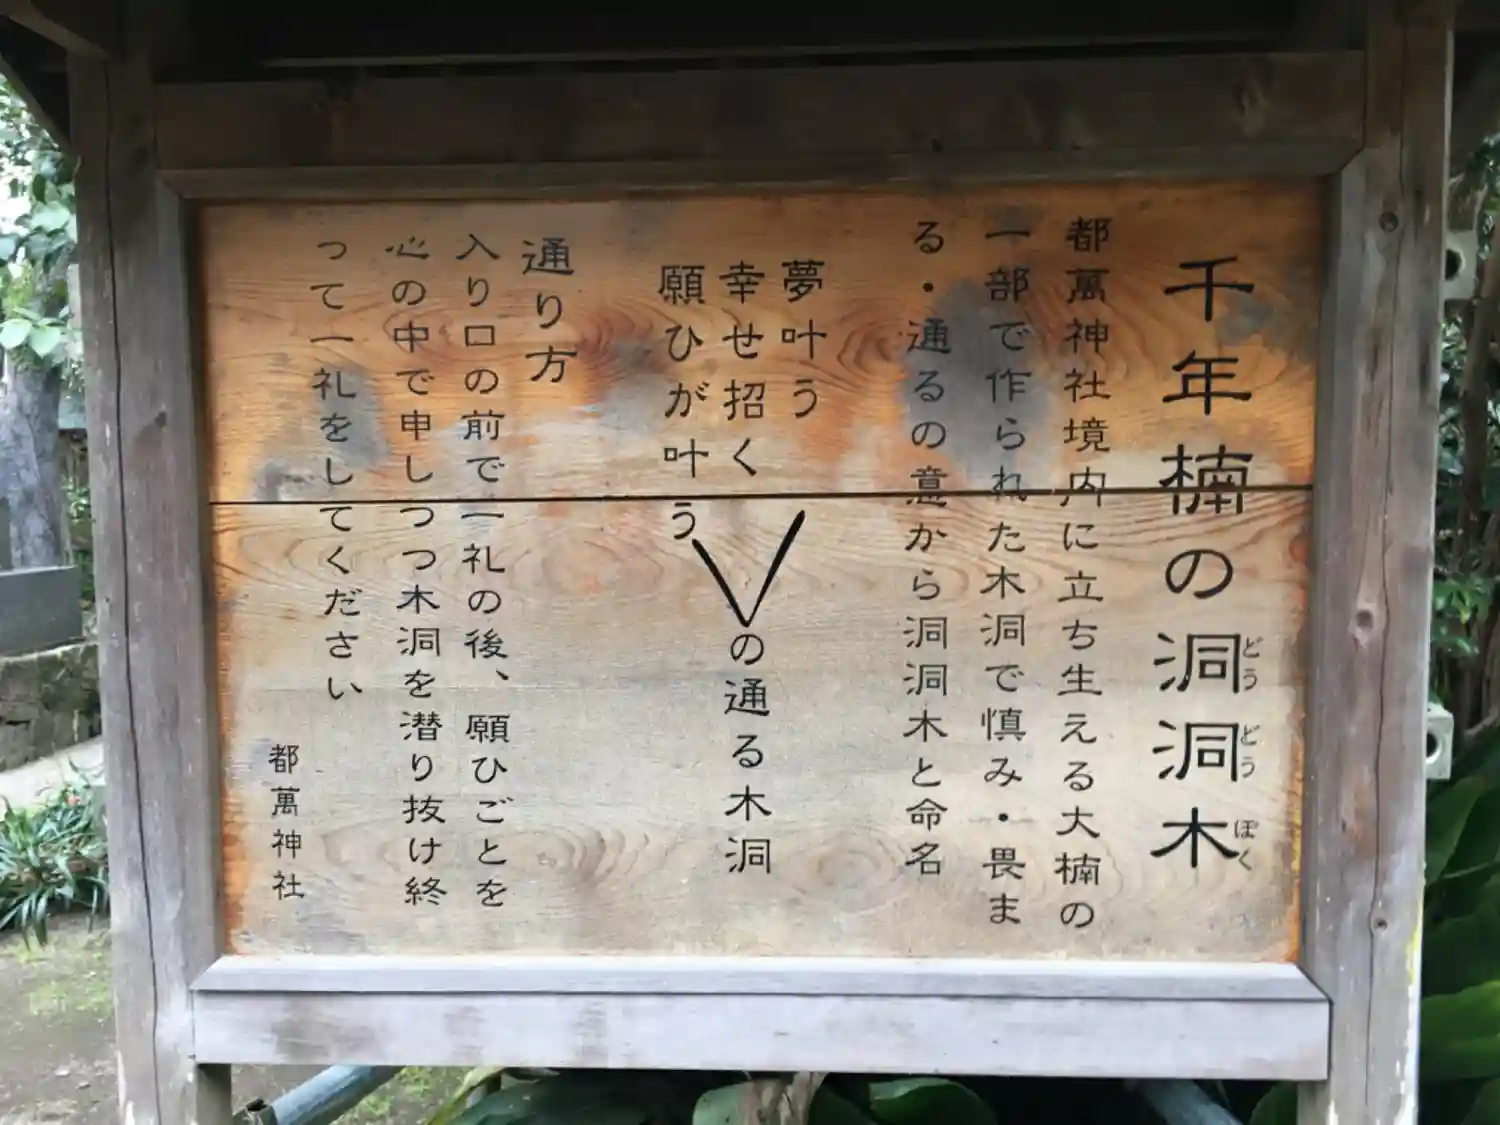 千年楠の洞洞木
どうどうぼく
都萬神社境内に立ち生える大楠の
一部で作られた木洞で慎み・畏ま
る・通るの意から洞洞木と命名
夢叶う
幸せ招く
願ひが叶う
の通る木洞
通り方
入り口の前で一礼の後、願ひごとを
心の中で申しつつ木洞を潜り抜け終
って一礼をしてください
都萬神社